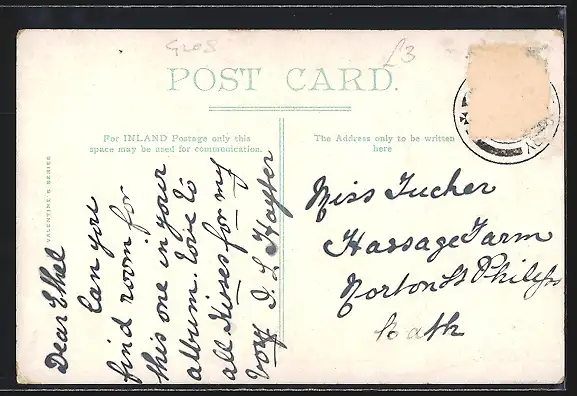 Glos
£3
POST CARD.
For INLAND Postage only this
space may be used for communication.
The Address only to be written
here
VALENTINE'S SERIES
Dear Ethel
Can you
find room for
this one in your
album. love to
all Kisses for my
boy I. L Hayter
Miss Tucker
Hassage Farm
Norton St Philips
Bath